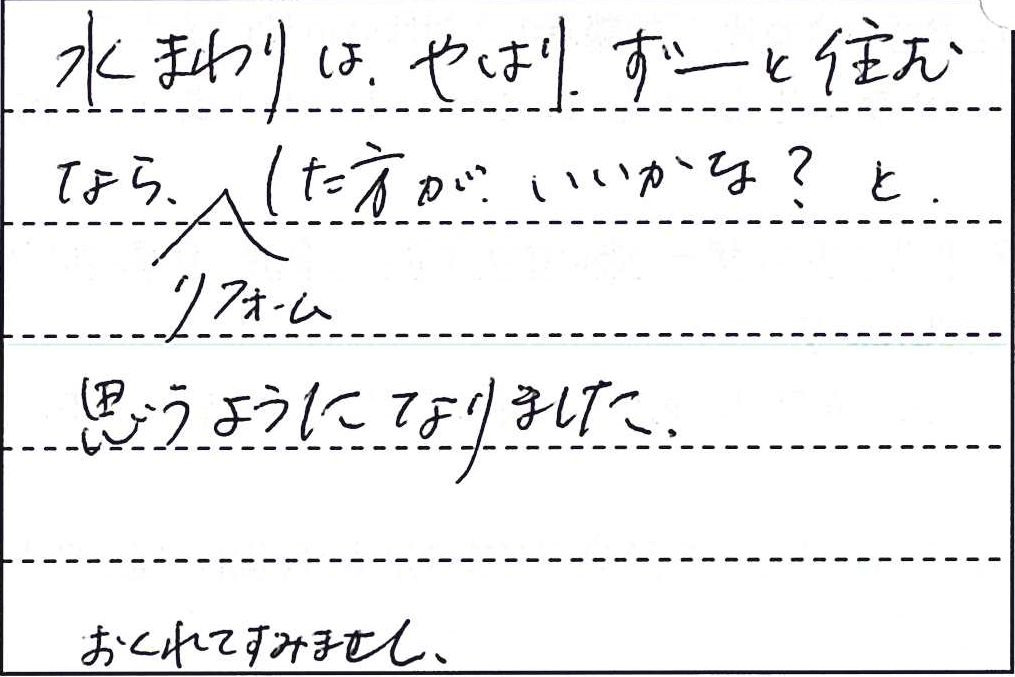 水まわりは、やはり、ずーっと住む
なら、した方が、いいかな？と、
リフォーム
思うようになりました。
おくれてすみません。